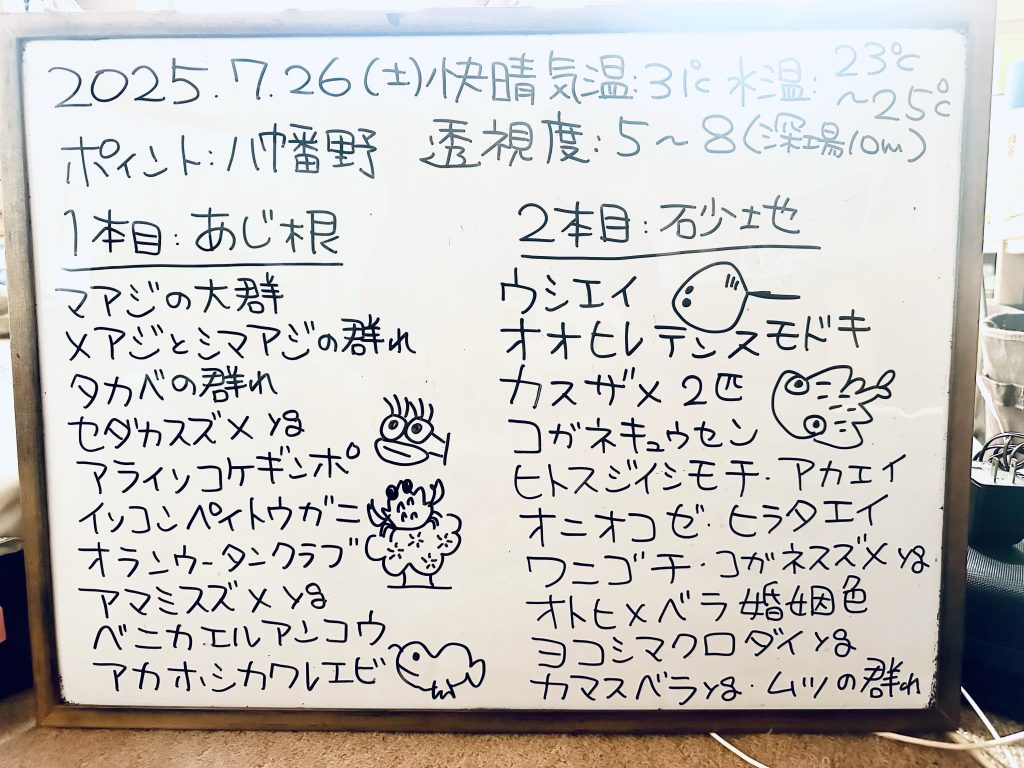 2025.7.26(土)快晴 気温:31℃ 水温:23℃~25℃
ポイント:八幡野 透視度:5~8(深場10m)
1本目:あじ根
マアジの大群
メアジとシマアジの群れ
タカベの群れ
セダカスズメyg
アライソコケギンポ
イソコンペイトウガニ
オランウータンクラブ
アマミスズメyg
ベニカエルアンコウ
アカホシカクレエビ
2本目:砂地
ウシエイ
オオヒレテンスモドキ
カスザメ 2匹
コガネキュウセン
ヒトスジイシモチ・アカエイ
オニオコゼ・ヒラタエイ
ワニゴチ・コガネスズメyg
オトヒメベラ婚姻色
ヨコシマクロダイyg
カマスベラyg・ムツの群れ